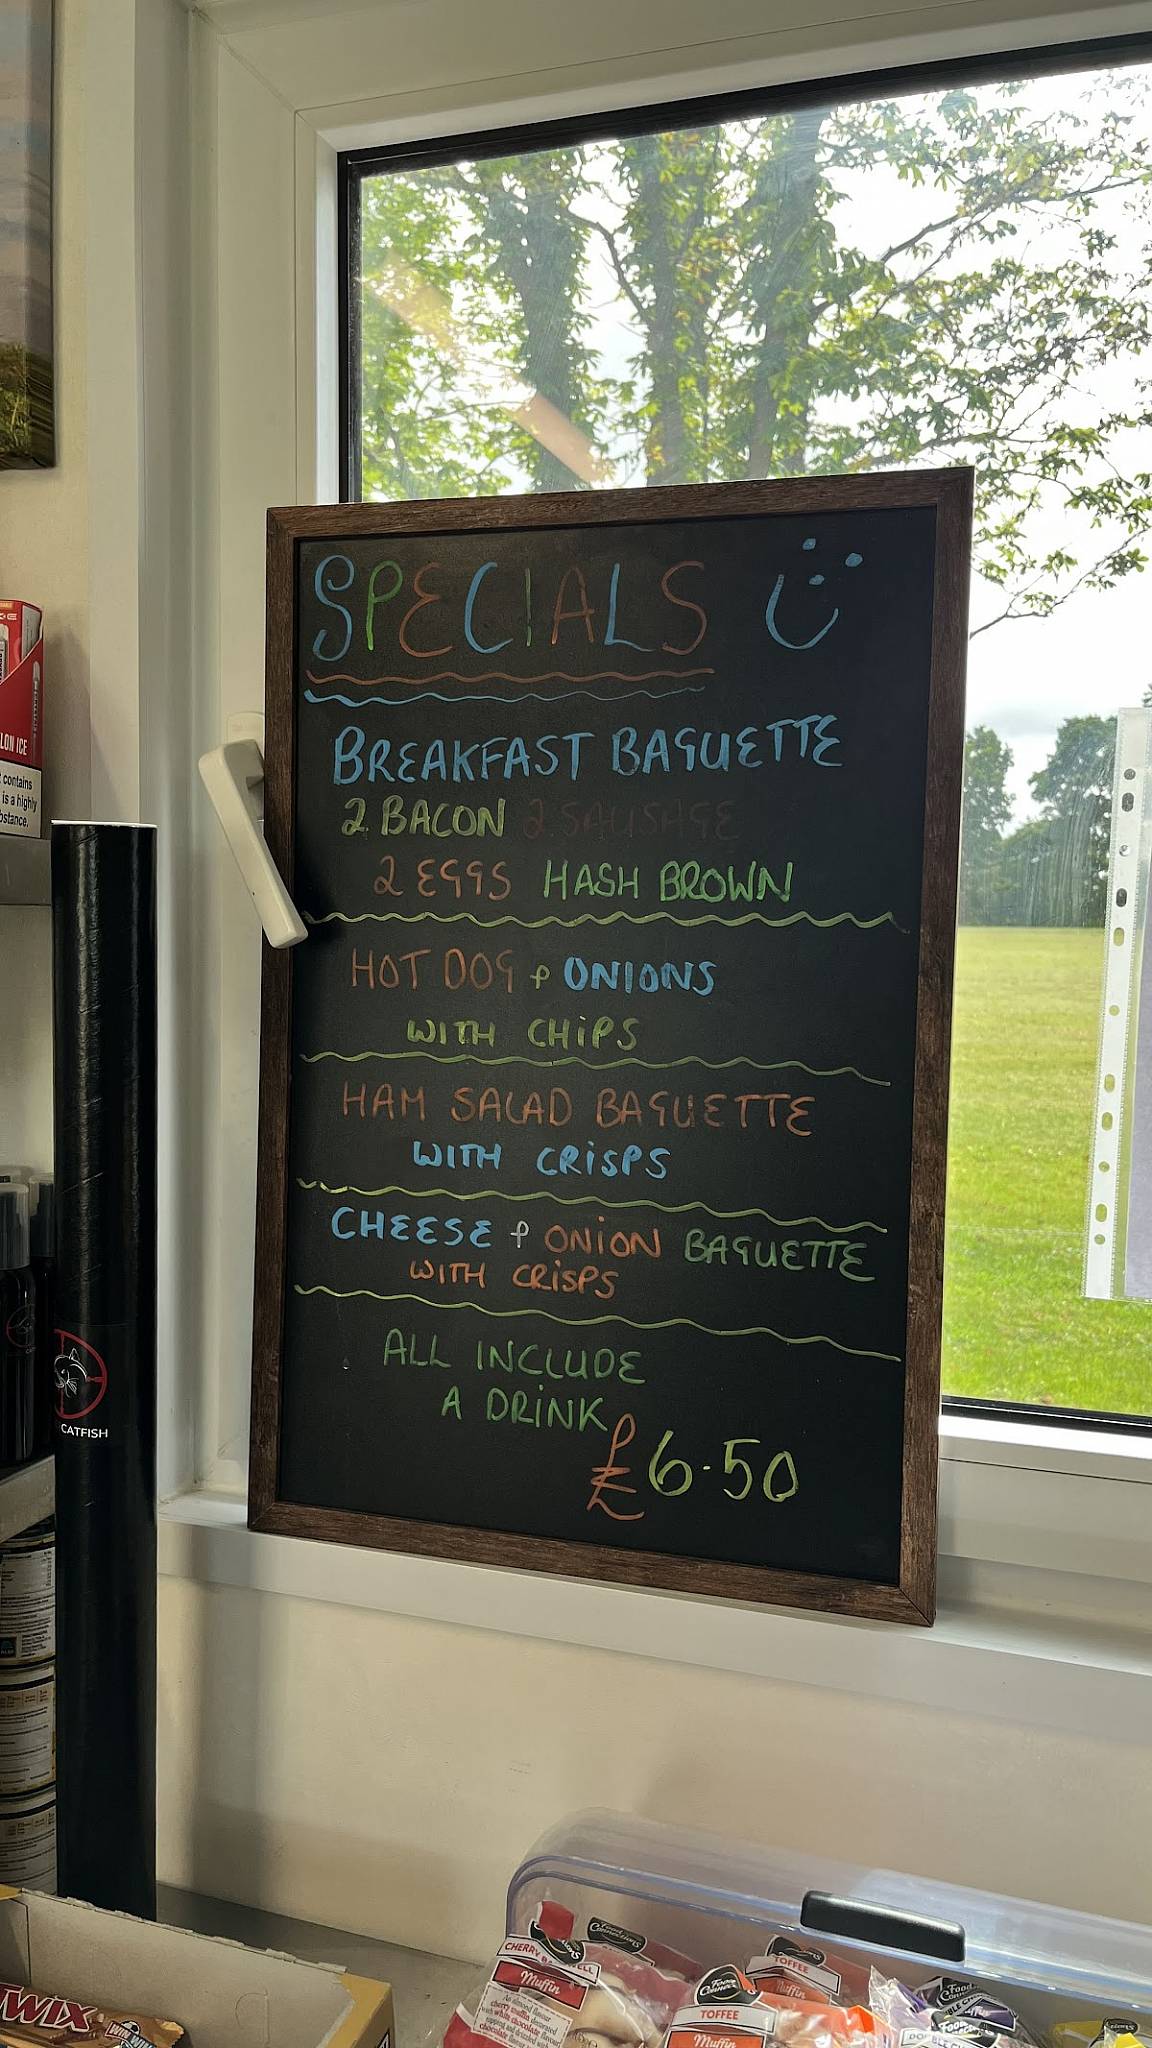 SPECIALS
BREAKFAST BAGUETTE
2 BACON 2 SAUSAGE
2 EGGS HASH BROWN
HOT DOG & ONIONS
WITH CHIPS
HAM SALAD BAGUETTE
WITH CRISPS
CHEESE & ONION BAGUETTE
WITH CRISPS
ALL INCLUDE
A DRINK
£6.50
LON ICE
contains
is a highly
bstance.
CATFISH
TWIX
CHERRY
Muffin
TOFFEE
Muffin
TOFFEE
Muffin